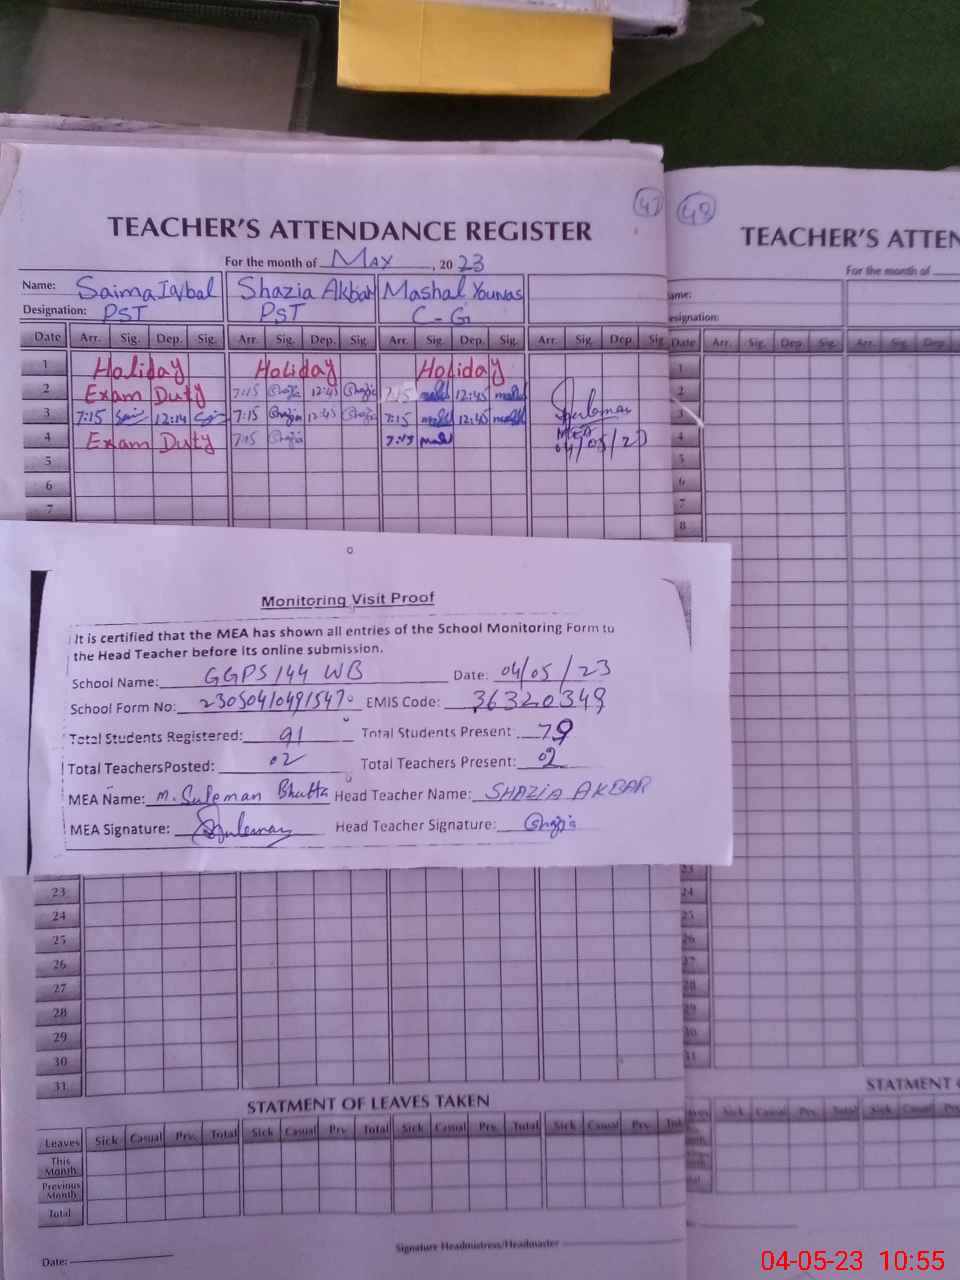 47 48
TEACHER'S ATTENDANCE REGISTER
TEACHER'S ATTEN
For the month of May, 2023
For the month of
Name: Saima Iqbal Shazia Akbar Mashal Younas
Designation: PST PST C-G
ame:
esignation:
Date Arr. Sig. Dep. Sig. Arr. Sig. Dep. Sig. Arr. Sig. Dep. Sig. Arr. Sig. Dep. Sig.
Date Arr. Sig. Dep. Sig. Arr. Sig. Dep
1 Holiday Holiday Holiday
2 Exam Duty 7:15 Shazia 12:45 Shazia 7:15 12:45
3 7:15 12:14 7:15 Shazia 12:45 Shazia 7:15 12:45 Suleman
4 Exam Duty 7:15 Shazia 7:15 MEA
04/05/23
5
6
7
1
2
3
4
5
6
7
8
Monitoring Visit Proof
It is certified that the MEA has shown all entries of the School Monitoring Form to
the Head Teacher before its online submission.
School Name: GGPS 144 WB Date: 04/05/23
School Form No: EMIS Code: 36320349
Total Students Registered: 91 Total Students Present: 79
Total TeachersPosted: 02 Total Teachers Present: 02
MEA Name: M. Suleman Bhutta Head Teacher Name: SHAZIA AKBAR
MEA Signature: Suleman Head Teacher Signature: Shazia
23
24
25
26
27
28
29
30
31
23
24
25
26
27
28
29
30
31
STATMENT OF LEAVES TAKEN
STATMENT
Leaves Sick Casual Prv. Total Sick Casual Prv Total Sick Casual Prv. Total Sick Casual Prv. Tot
Sick Casual Prv. Total Sick Casual Prv
This Month
Previous Month
Total
Date: Signature Headmistress/Headmaster
04-05-23 10:55